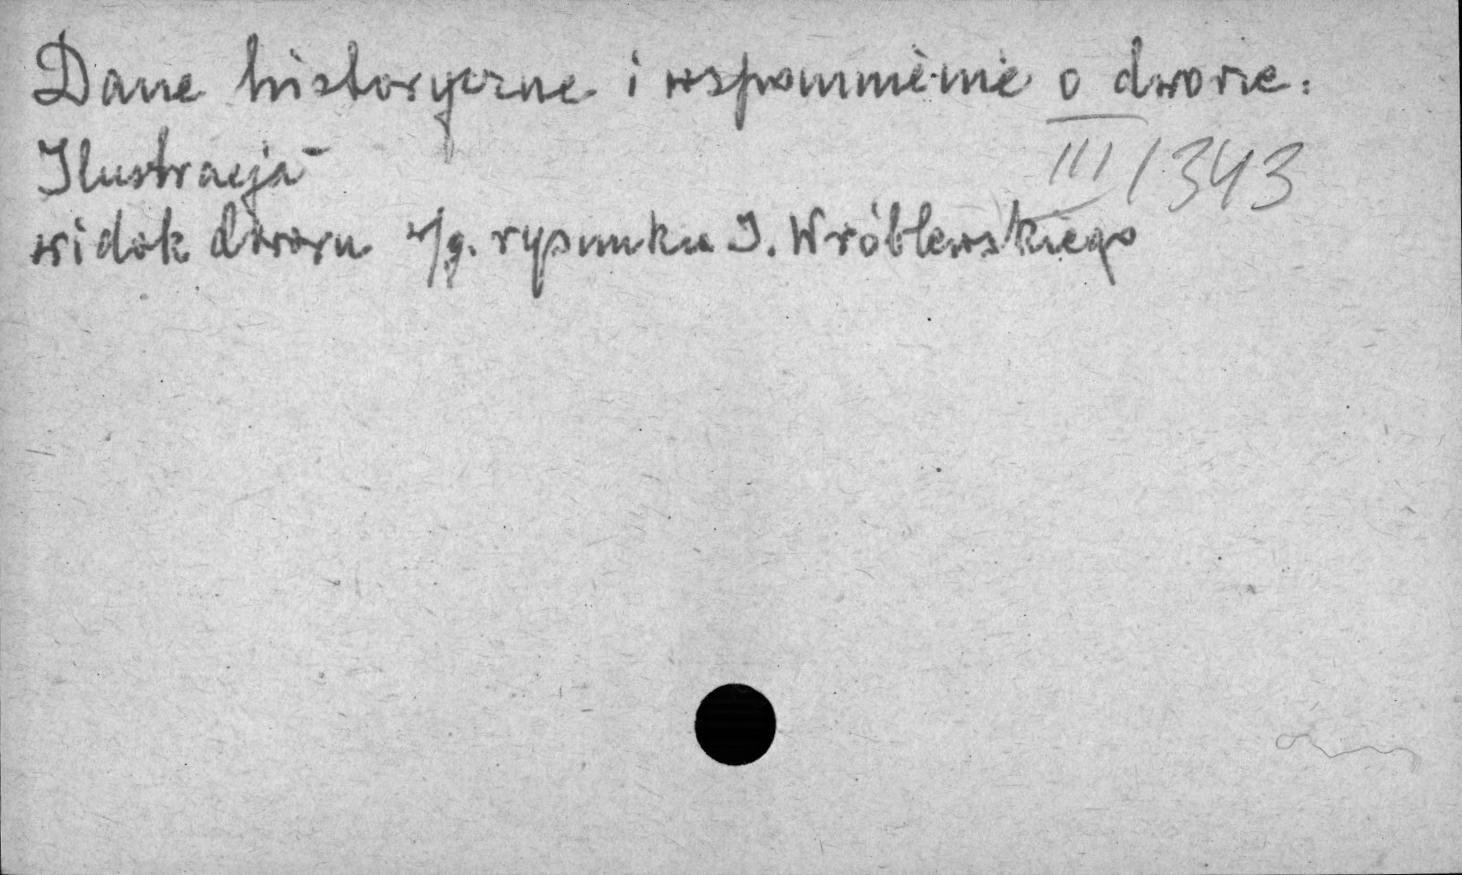 Dane historyczne i wspomnienie o dworze.
III 1343
Ilustracja -
widok dworu w/g. rysunku J. Wróblewskiego